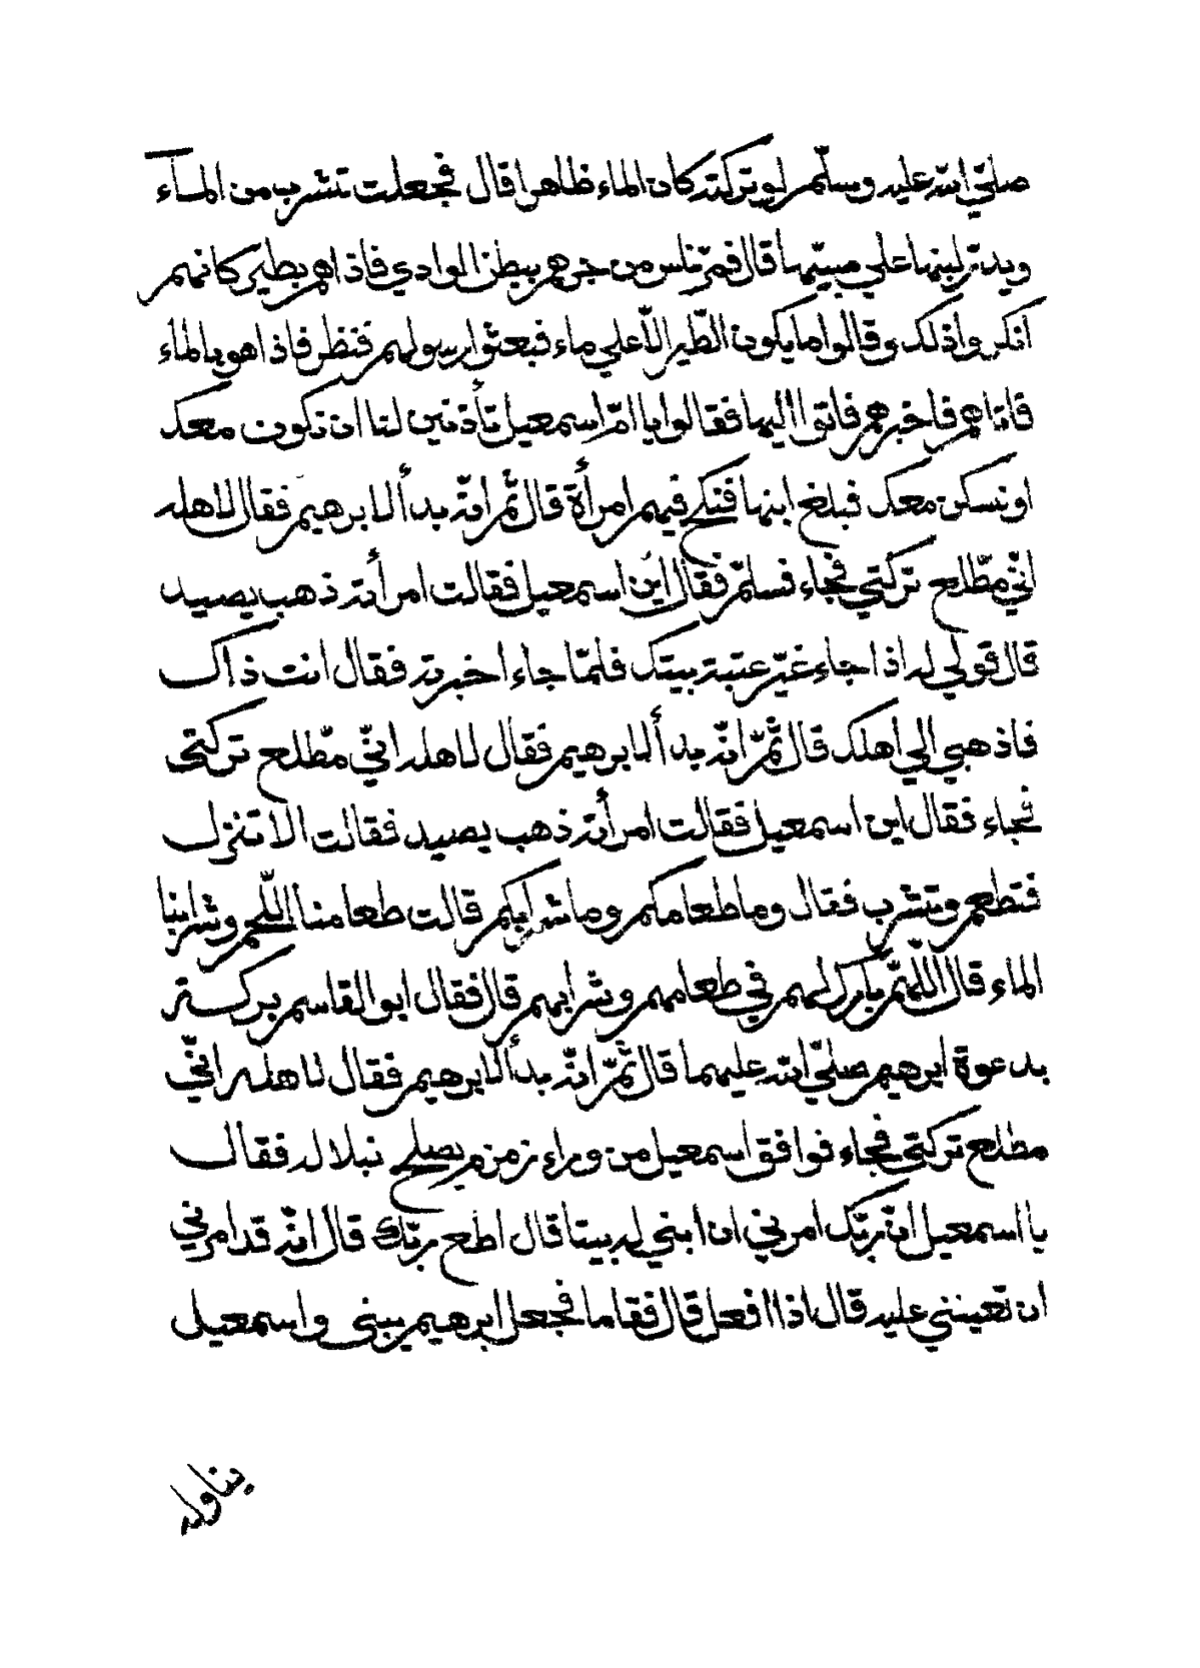 صلّي الله عليه وسلّم لو تركته كان الماء ظاهرا قال فجعلت تشرب من المآء
ويدرّ لبنها علي صبيّها قال فمرّ ناس من جرهم ببطن الوادي فاذا هم بطير كانهم
انكروا ذلك وقالوا ما يكون الطّير الّا علي ماء فبعثوا رسولهم فنظر فاذا هو بالماء
فاتاهم فاخبرهم فاتوا اليها فقالوا يا امّ اسمعيل تأذنين لنا ان نكون معك
او نسكن معك فبلغ ابنها فنكح فيهم امرأة قال ثمّ انّه بدأ لابرهيم فقال لاهله
انّي مطّلع تركتي فجاء فسلّم فقال اين اسمعيل فقالت امرأته ذهب يصيد
قال قولي له اذا جاء غيّر عتبة بيتك فلمّا جاء اخبرته فقال انت ذاك
فاذهبي الي اهلك قال ثمّ انّه بدأ لابرهيم فقال لاهله انّي مطّلع تركتي
فجاء فقال اين اسمعيل فقالت امرأته ذهب يصيد فقالت الا تنزل
فتطعم وتشرب فقال وما طعامكم وما شرابكم قالت طعامنا اللّحم وشرابنا
الماء قال اللّهمّ بارك لهم في طعامهم وشرابهم قال فقال ابو القاسم بركة
بدعوة ابرهيم صلّي الله عليهما قال ثمّ انّه بدأ لابرهيم فقال لاهله انّي
مطلع تركتي فجاء فوافق اسمعيل من وراء زمزم يصلح نبلا له فقال
يا اسمعيل انّ ربّك امرني ان ابني له بيتا قال اطع ربّك قال انّه قد امرني
ان تعينني عليه قال اذا افعل قال فقاما فجعل ابرهيم يبني واسمعيل
يناوله